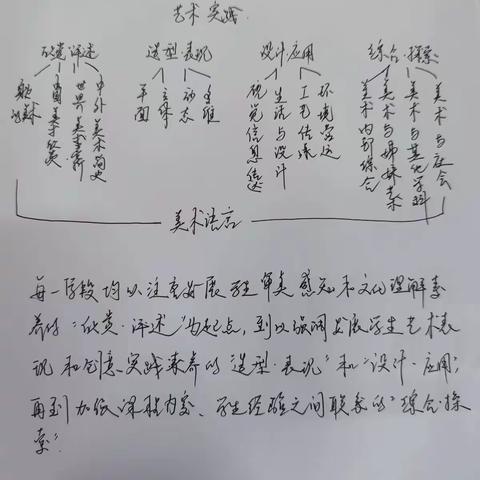 艺术实践
欣赏·评述 造型·表现 设计·应用 综合·探索
中国美术欣赏
世界美术赏析
中外美术简史
平面 立体 动态 多维
视觉信息传达
生活与设计
工艺传承
环境营造
美术内部综合
美术与姊妹艺术
美术与其他学科
美术与社会
美术语言
每一学段均以注重发展学生审美感知和文化理解素
养的“欣赏·评述”为起点，到以强调发展学生艺术表
现和创意实践素养的“造型·表现”和“设计·应用；
再到加强课程内容、学生经验之间联系的“综合·探
索”。